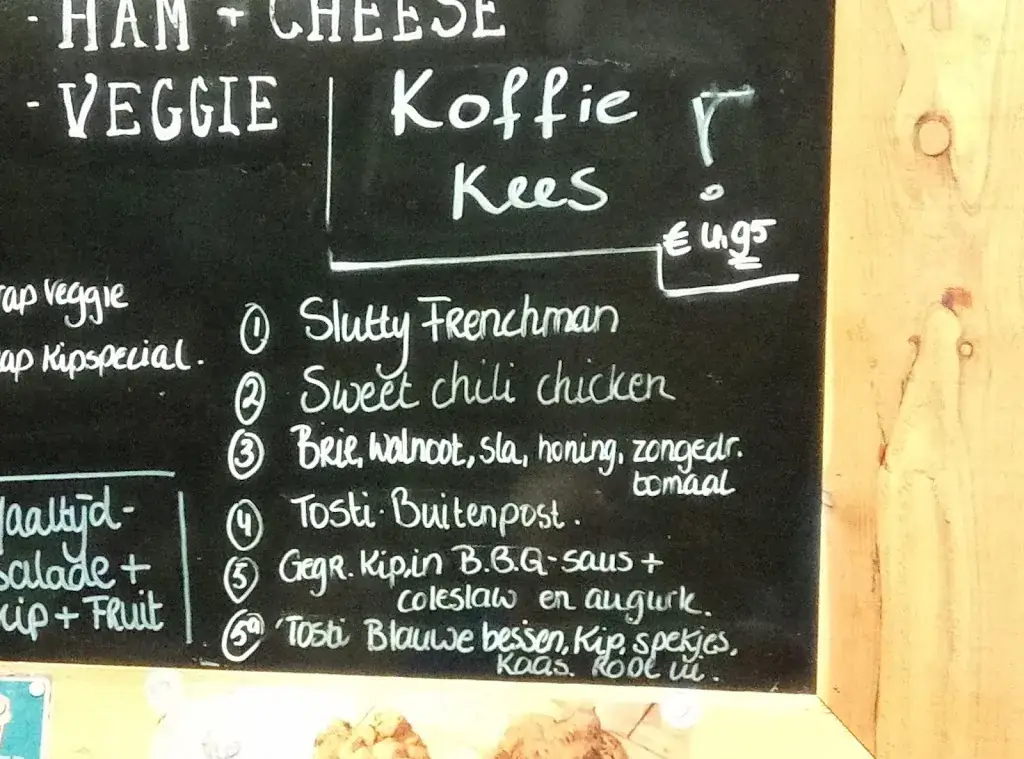 - HAM + CHEESE
- VEGGIE
Koffie
Kees
€ 4,95
ap Veggie
ap Kipspecial.
1 Slutty Frenchman
2 Sweet chili chicken
3 Brie, walnoot, sla, honing, zongedr.
tomaat
4 Tosti Buitenpost.
5 Gegr. Kip in B.B.Q-saus +
coleslaw en augurk.
5a Tosti Blauwe bessen, Kip, spekjes,
Kaas. Rode ui.
aaltijd-
salade +
kip + Fruit